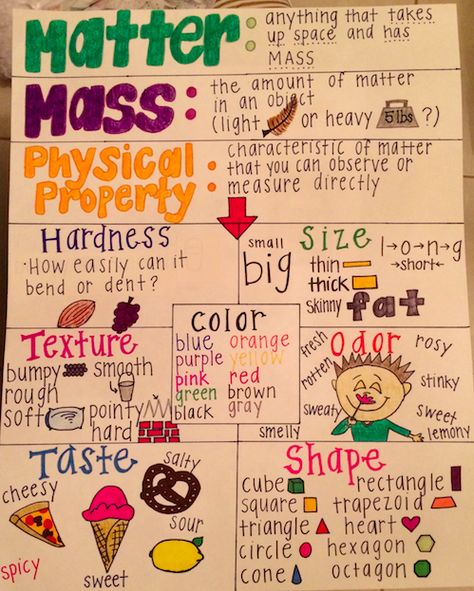 Matter: anything that takes
up space and has
MASS
Mass: the amount of matter
in an object
(light or heavy 5 lbs ?)
Physical
Property: characteristic of matter
that you can observe or
measure directly
Hardness
·How easily can it
bend or dent?
small
big
Size
l→o→n→g
thin
→short←
thick
skinny fat
Texture
bumpy smooth
rough
soft pointy
hard
color
blue orange
purple yellow
pink red
green brown
black gray
Odor
fresh
rosy
rotten
stinky
sweaty
sweet
lemony
smelly
Taste
salty
cheesy
sour
spicy
sweet
Shape
cube rectangle
square trapezoid
triangle heart
circle hexagon
cone octagon